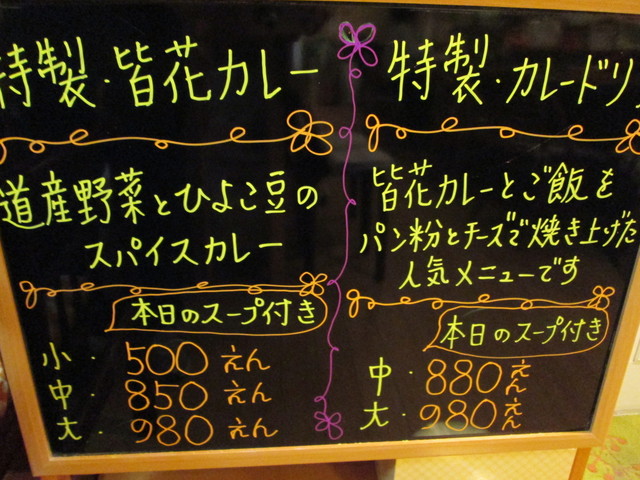 特製・皆花カレー
道産野菜とひよこ豆の
スパイスカレー
本日のスープ付き
小・500えん
中・850えん
大・980えん
特製・カレードリ
皆花カレーとご飯を
パン粉とチーズで焼き上げた
人気メニューです
本日のスープ付き
中・880えん
大・980えん